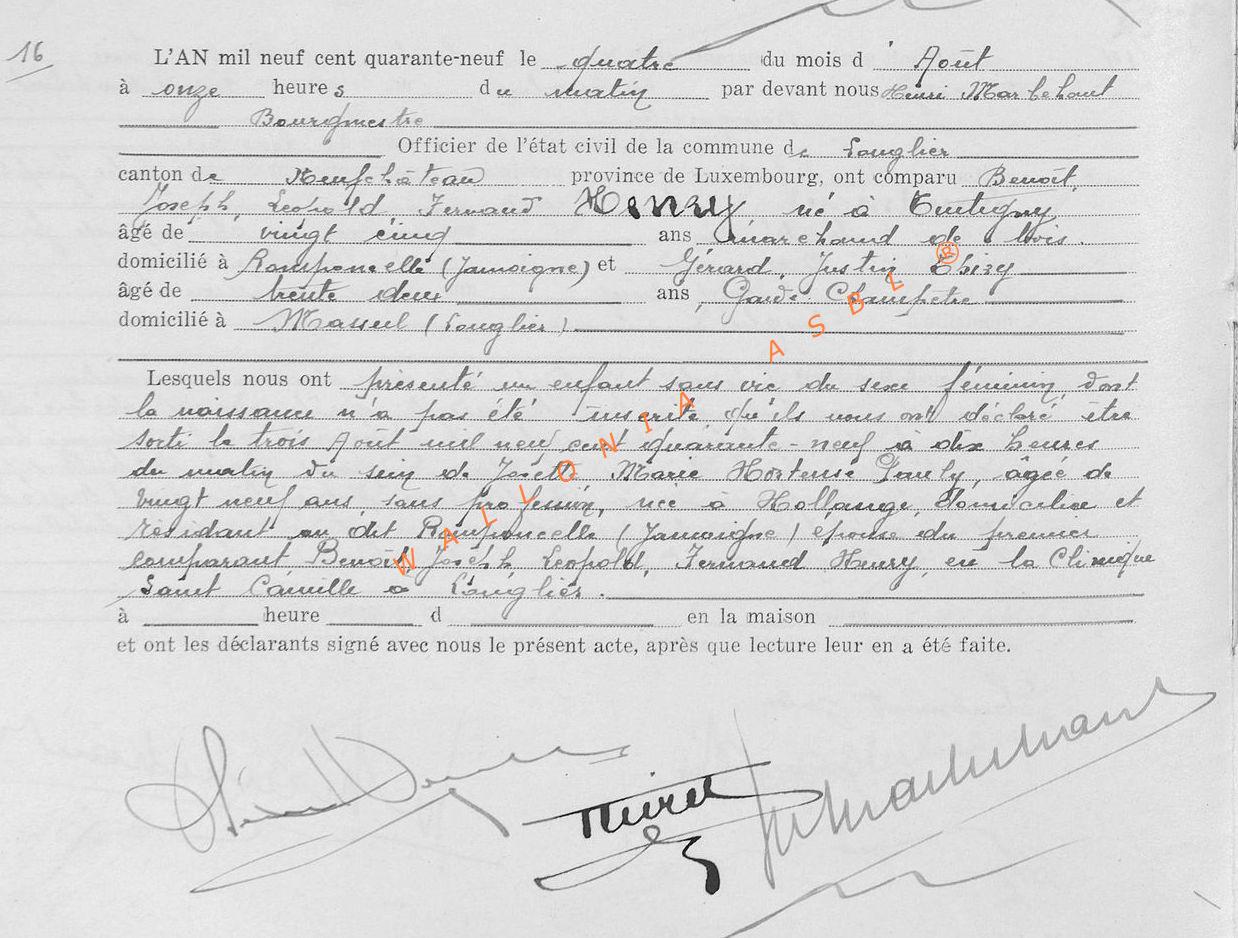 16
L'AN mil neuf cent quarante-neuf le quatre du mois d' Août
à onze heures du matin par devant nous Henri Marbehant
Bourgmestre
Officier de l'état civil de la commune de Longlier
canton de Neufchâteau province de Luxembourg, ont comparu Benoît,
Joseph, Léopold, Fernand Henry, né à Tintigny
âgé de vingt cinq ans marchand de bois.
domicilié à Romponcelle (Jamoigne) et Gérard, Justin Thiry
âgé de trente deux ans, Garde Champêtre
domicilié à Massul (Longlier)
Lesquels nous ont présenté un enfant sans vie du sexe féminin, dont
la naissance n'a pas été inscrite qu'ils nous ont déclaré être
sorti le trois Août mil neuf cent quarante-neuf à dix heures
du matin du sein de Josette Marie Hortense Pauly, âgée de
vingt neuf ans, sans profession, née à Hollange, domiciliée et
résidant au dit Romponcelle (Jamoigne) épouse du premier
comparant, Benoît, Joseph, Léopold, Fernand Henry, en la Clinique
Saint Camille à Longlier.
à heure d en la maison
et ont les déclarants signé avec nous le présent acte, après que lecture leur en a été faite.
WALLONIA ASBL @